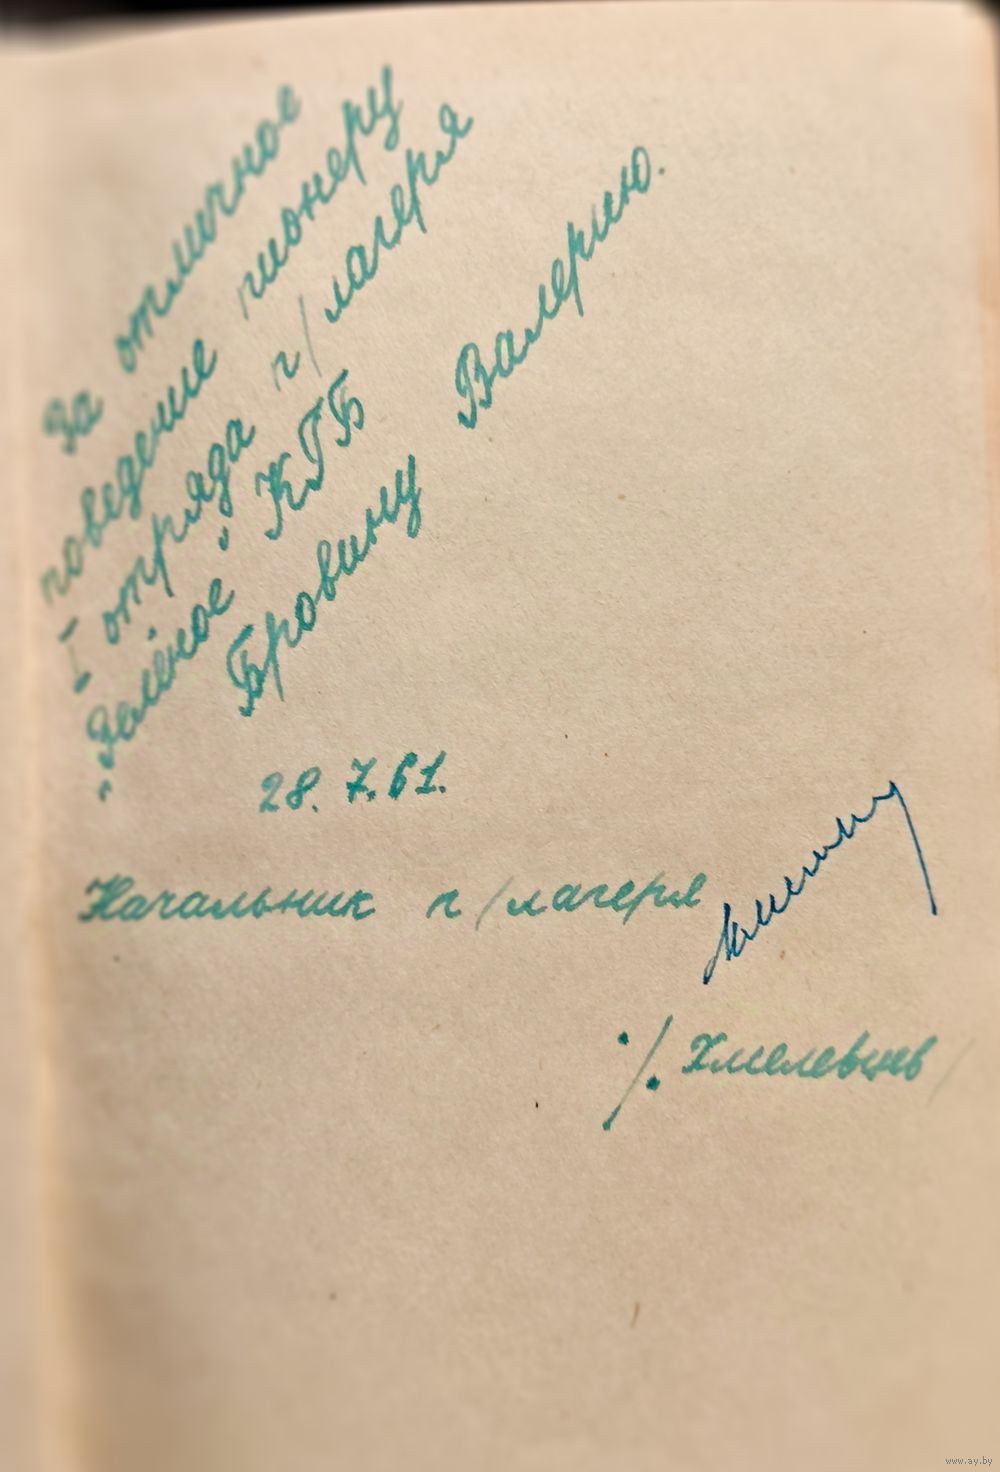 За отличное
поведение пионеру
I отряда п/лагеря
"Зелёное" КГБ
Бровину Валерию.
28.7.61.
Начальник п/лагеря
/. Хмелевцев/
www.ay.by